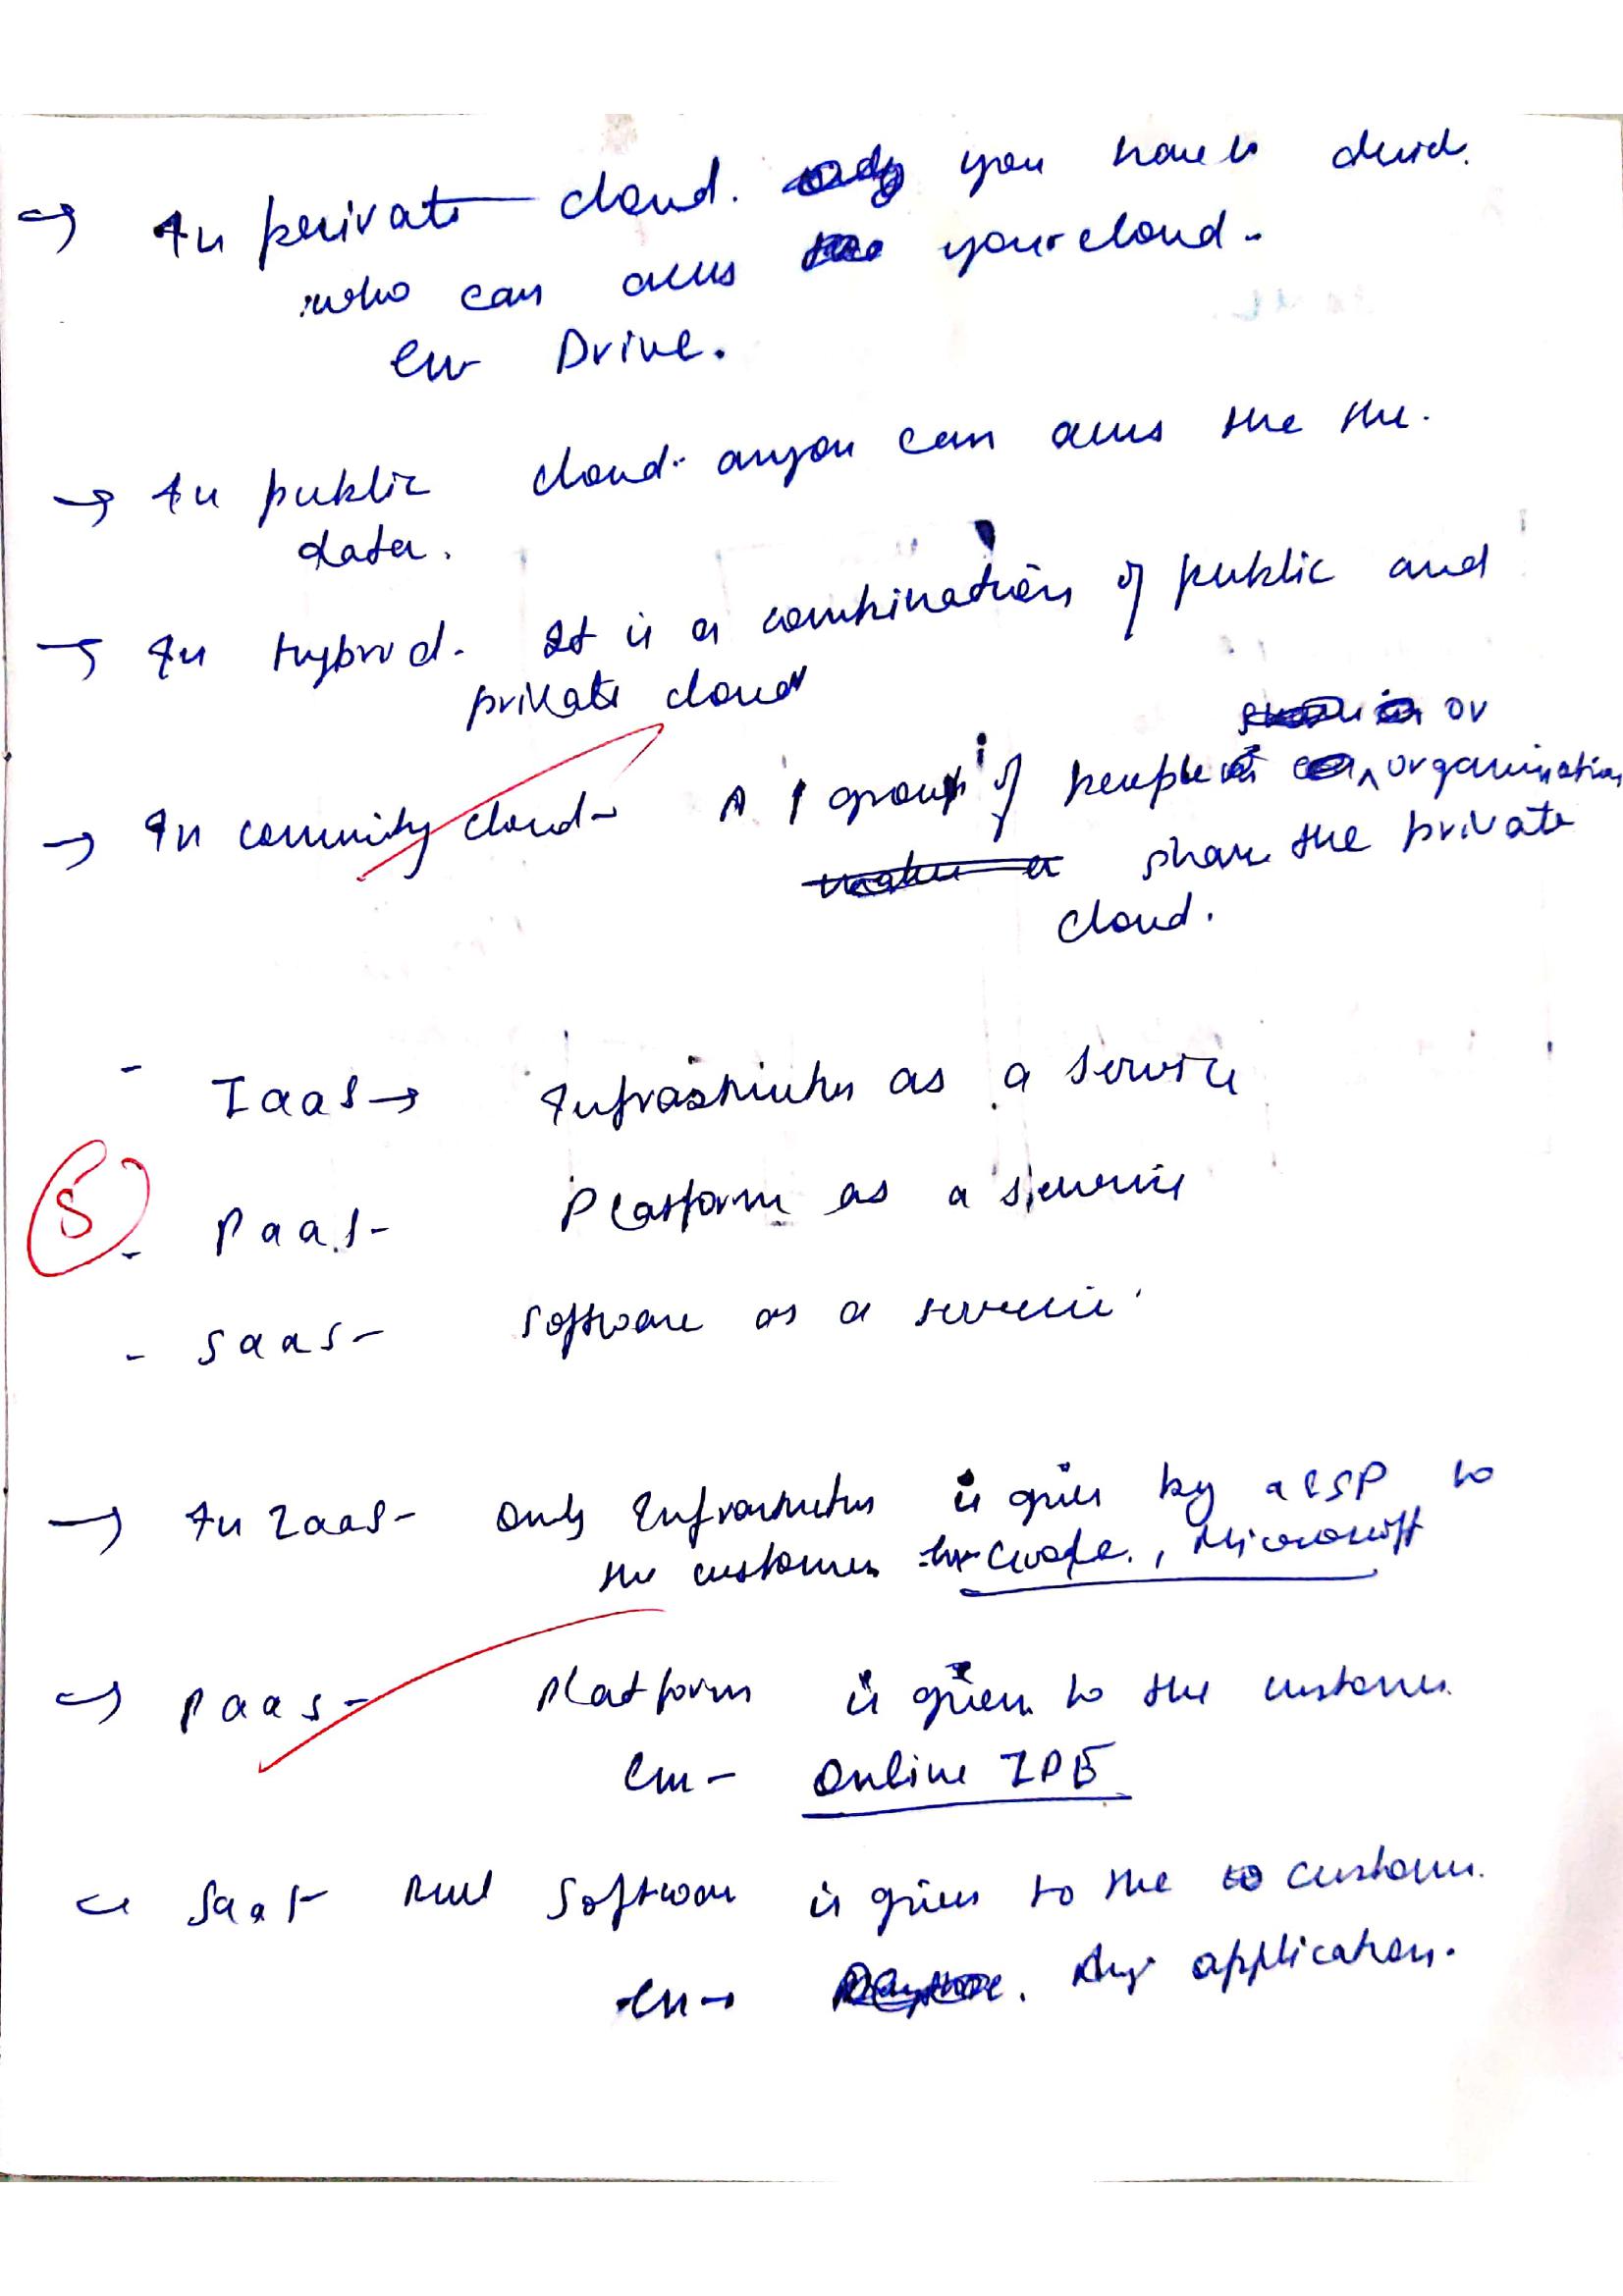 → In private cloud. you have to decid.
who can access your cloud.
Drive.
→ In public cloud. anyon can access the the.
data.
→ In Hybrid. It is a combination of public and
private cloud
or
→ In commity cloud- A group of people organization
share the private
cloud.
- IaaS → Infrastructure as a service
5
- PaaS- Platform as a service
- SaaS- Software as a service
→ In IaaS- Only Infrastructure is given by a CSP to
the customer Google, Microsoft
→ PaaS- Platform is given to the customer.
Online IDE
SaaS- Software is given to the to customer.
Any application.